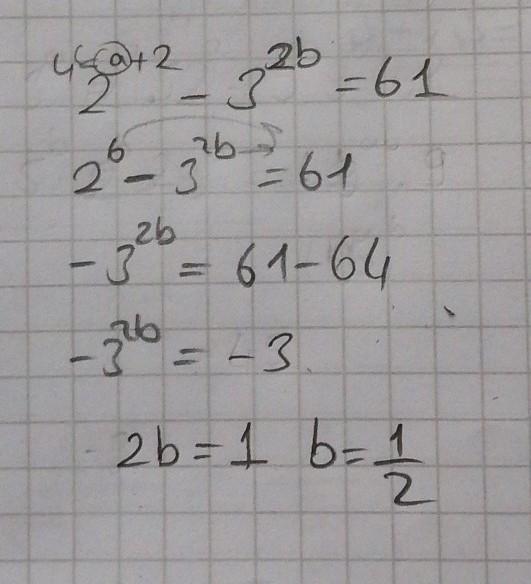 4← a+2
2^(a+2) - 3^(2b) = 61
2^6 - 3^(2b) = 61
-3^(2b) = 61-64
-3^(2b) = -3
2b = 1  b = 1/2